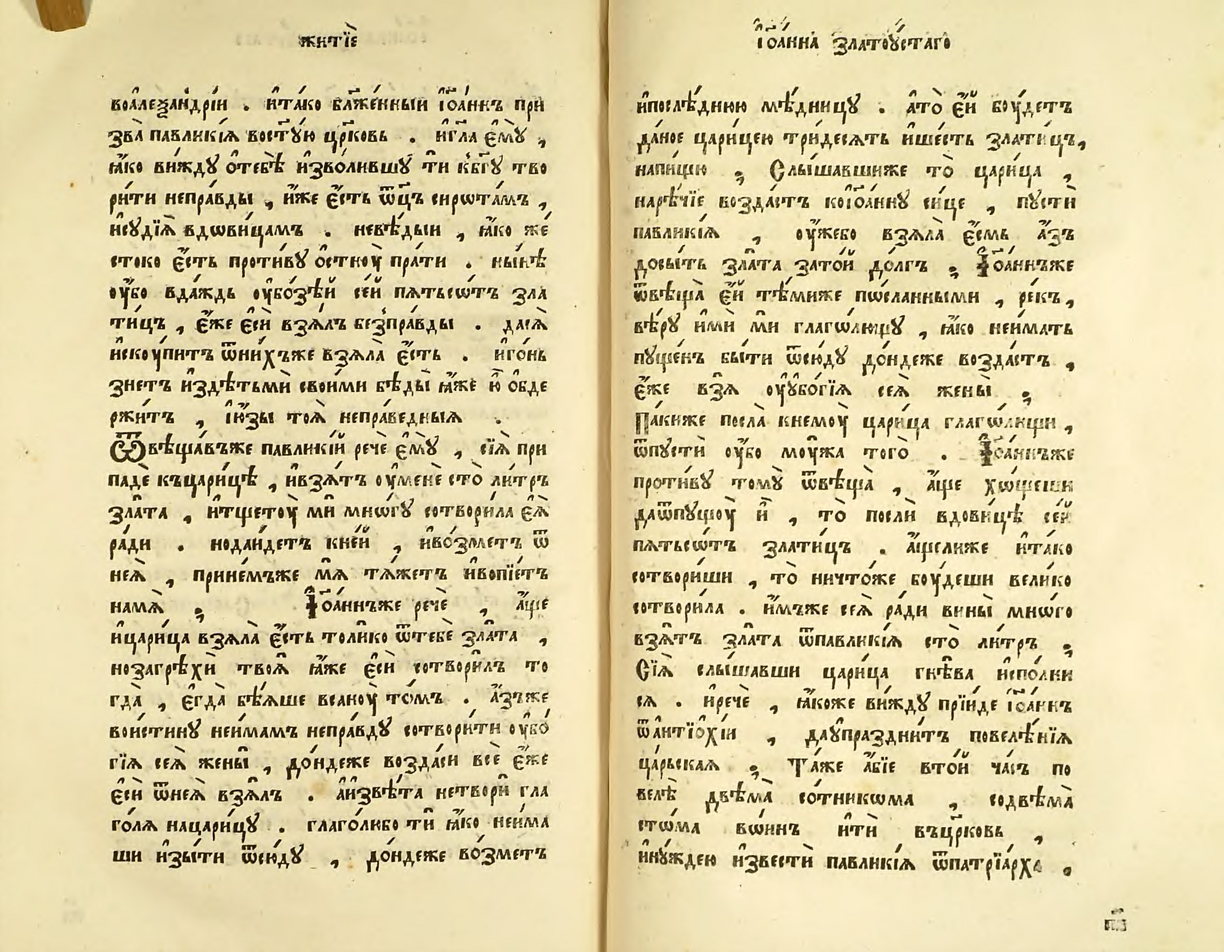 житїѐ
воалеѯандрі́и . и҆та́ко бл҃же́нный і҆ѡа́ннъ при
зва̀ павлики́ѧ востꙋ́ю цр҃ковь . и҆гла е҆мꙋ̀ ,
ꙗ҆́ко вижду ѿтебѐ и҆зво́лившу ти къб҃гꙋ тво
ри́ти непра́вды , и҆́же є҆́сть ѻ҆ц҃ъ сирѡта́мъ ,
и҆судїѧ̀ вдови́цамъ . невѣ́дыи , ꙗ҆́ко же
стоко є҆́сть проти́ву о҆стноу̀ пра́ти . ны́нѣ
оу҆́бо вда́ждь оу҆бо́зѣй се́й пѧтьсѡ́тъ зла
ти́цъ , є҆́же є҆сѝ взѧ́лъ безпра́вды . дасѧ̀
и҆скоупитъ ѿни́хъже взѧла̀ є҆́сть . и҆го́нь
зне́тъ и҆здѣтьмѝ свои́ми бѣды̀ ꙗ҆́же ю҆̀ о҆бде
ржи́тъ , і҆ю҆́зы тоѧ̀ непра́ведныѧ .
Ѿвѣща́въже павлики́й речѐ є҆мꙋ̀ , сїѧ̀ при
падѐ къцари́цѣ , и҆взѧ́тъ оу҆менѐ сто̀ ли́тръ
зла́та , и҆тщетоу̀ ми мно́гу сотвори́ла є҆ѧ̀
ра́ди . нода́и́детъ кне́й , и҆во́зметъ ѿ
неѧ̀ , прине́мъже мѧ̀ тѧ́жетъ и҆вопїе́тъ
намѧ̀ ; І҆ѡа́ннъже речѐ , а҆́ще
и҆цари́ца взѧла̀ є҆́сть толи́ко ѿтебѐ зла́та ,
нозагрѣхѝ твоѧ̀ ꙗ҆́же є҆сѝ сотвори́лъ то
гда̀ , є҆гда̀ бѣ́ѧше всаноу̀ то́мъ . а҆́зъже
вои́стину неи́мамъ непра́вду сотвори́ти оу҆бо́
гїѧ сеѧ̀ жены̀ , до́ндеже возда́си всѐ є҆́же
є҆сѝ ѿнеѧ̀ взѧ́лъ . а҆и҆звѣ́та нетворѝ гла
го́лѧ нацари́цꙋ . глаго́либо ти ꙗ҆́ко неи́ма
ши и҆зы́ти ѿсю́дꙋ , до́ндеже во́зметъ
і҆ѡа́нна злато́ꙋстагѡ
и҆послѣ́днюю мѣ́дницꙋ . а҆то̀ е҆́й боу́детъ
да́ное цари́цею три́десѧть и҆ше́сть злати́цъ,
напи́щю ; Слы́шавшиже то̀ цари́ца ,
наре́чїе возда́стъ коі҆ѡа́нну си́це , пустѝ
павлики́ѧ , оу҆́жебо взѧла̀ є҆́смь а҆́зъ
до́сыть зла́та зато́й до́лгъ ; І҆ѡа́ннъже
ѿвѣща̀ е҆́й тѣ́миже по́сланными , ре́къ ,
вѣ́ру и҆мѝ мѝ глаго́лющу , ꙗ҆́ко неи́мать
пу́щенъ бы́ти ѿсю́ду до́ндеже возда́стъ ,
є҆́же взѧ̀ оу҆оу҆бо́гїѧ сеѧ̀ жены̀ ;
Па́киже посла̀ кнемоу̀ цари́ца глаго́лющи ,
ѿпустѝ оу҆́бо моу́жа того̀ . І҆ѡа́ннъже
проти́ву тому̀ ѿвѣща̀ , а҆́ще хо́щеши
даѿпущоу̀ и҆̀ , то̀ послѝ вдови́цѣ се́й
пѧтьсѡ́тъ злати́цъ . а҆́щелиже и҆та́ко
сотвори́ши , то̀ ничто́же боу́деши вели́ко
сотвори́ла . и҆́мъже сеѧ̀ ра́ди вины̀ мно́го
взѧ́тъ зла́та ѿпавлики́ѧ сто̀ ли́тръ ;
Сїѧ̀ слы́шавши цари́ца гнѣ́ва и҆спо́лни
сѧ . и҆речѐ , ꙗ҆́коже ви́жду прїи́де і҆ѡа́ннъ
ѿа҆нтїо́хїи , даупраздни́тъ повелѣ́нїѧ
ца́рьскаѧ ; Та́же а҆́бїе вто́й ча́съ по
велѐ двѣ́ма со́тникома , содвѣма̀
сто́ма во́инъ и҆тѝ въцр҃ковь ,
и҆ну́ждею и҆звестѝ павлики́ѧ ѿпатрїа́рха ;